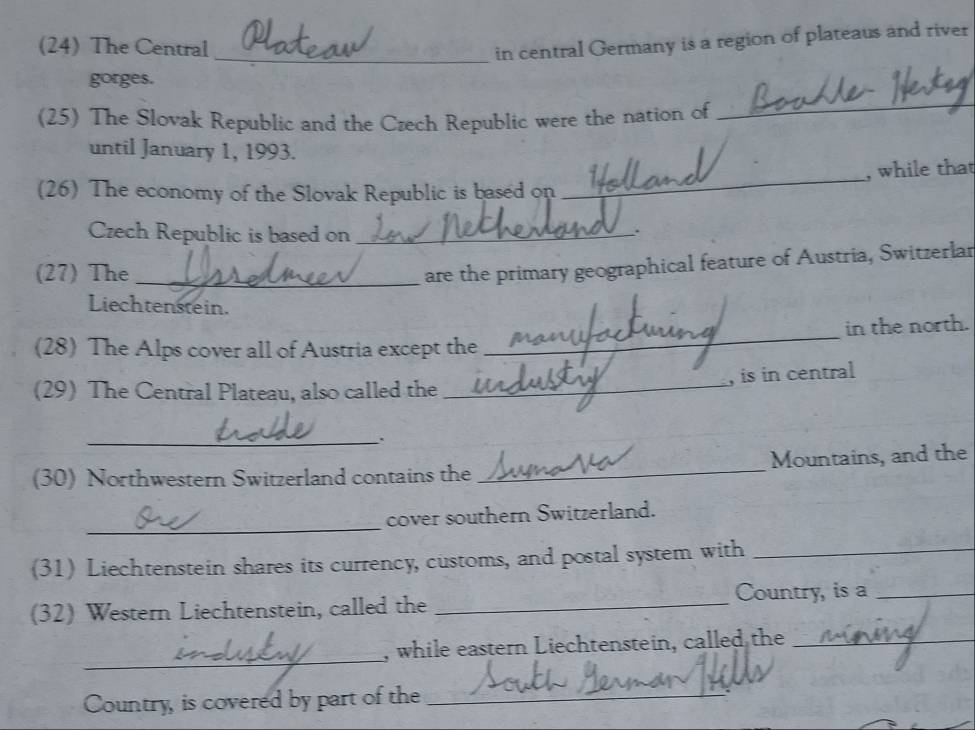 (24) The Central Plateau in central Germany is a region of plateaus and river
gorges.
(25) The Slovak Republic and the Czech Republic were the nation of
until January 1, 1993.
(26) The economy of the Slovak Republic is based on Holland, while that
Czech Republic is based on Low Netherland.
(27) The are the primary geographical feature of Austria, Switzerlan
Liechtenstein.
(28) The Alps cover all of Austria except the manufacturing in the north.
(29) The Central Plateau, also called the industry, is in central
tralde.
(30) Northwestern Switzerland contains the Sumava Mountains, and the
Ore cover southern Switzerland.
(31) Liechtenstein shares its currency, customs, and postal system with
(32) Western Liechtenstein, called the Country, is a
industry, while eastern Liechtenstein, called the mining
Country, is covered by part of the South German Hills